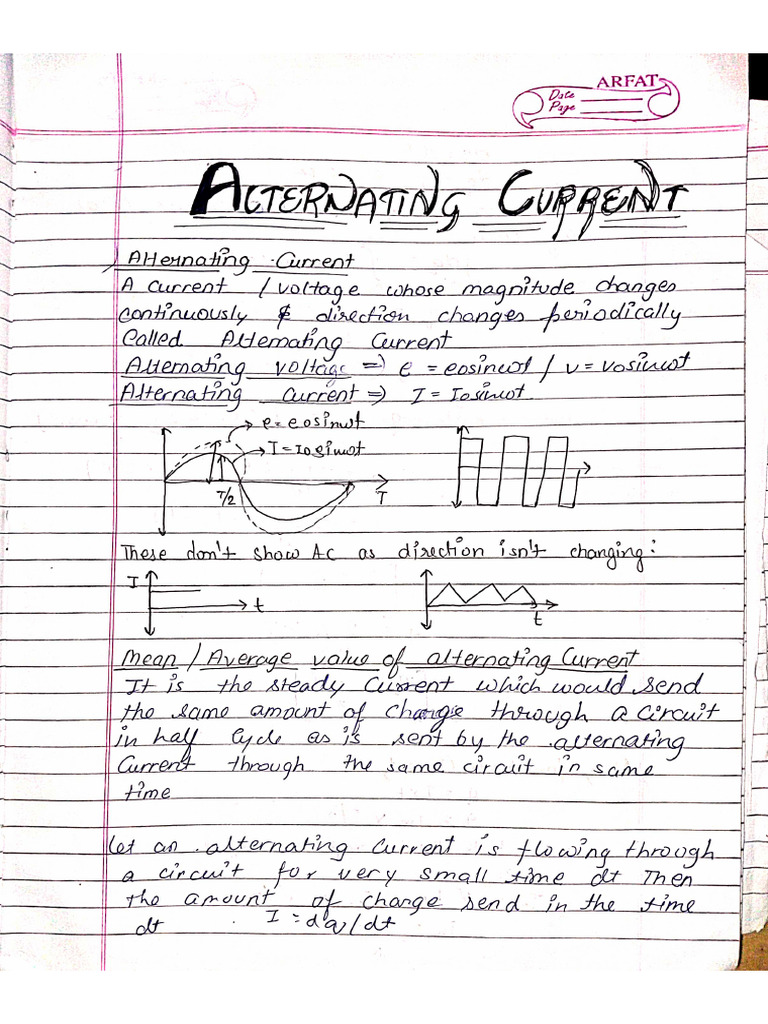 ARFAT
Date
Page
ALTERNATING CURRENT
) Alternating Current
A current / voltage whose magnitude changes
continuously & direction changes periodically
Called Alternating Current
Alternating voltage ⇒ e = eosinwt / v = vosinwt
Alternating Current ⇒ I = Iosinwt
e = eosinwt
I = Iosinwt
T/2
T
These don't show AC as direction isn't changing:
I
t
t
Mean / Average value of alternating Current
It is the steady Current which would send
the same amount of charge through a circuit
in half Cycle as is sent by the alternating
Current through the same circuit in same
time
Let an alternating Current is flowing through
a circuit for very small time dt Then
the amount of charge send in the time
dt I = dq/dt